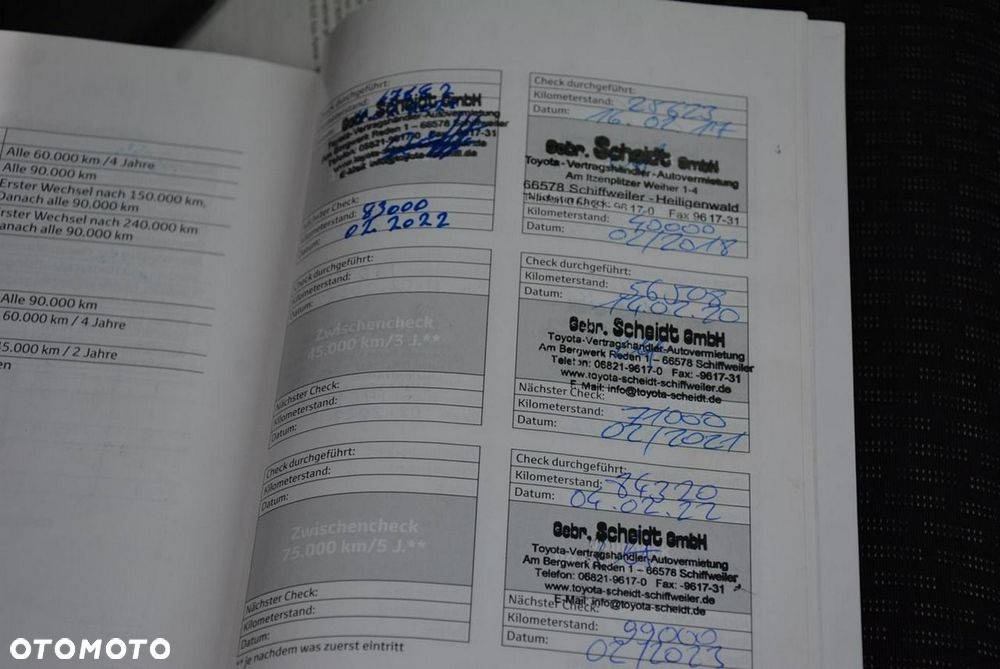 Alle 60.000 km/4 Jahre
Alle 90.000 km
Erster Wechsel nach 150.000 km,
Danach alle 90.000 km
Erster Wechsel nach 240.000 km
Danach alle 90.000 km
Alle 90.000 km
60.000 km / 4 Jahre
45.000 km / 2 Jahre
Check durchgeführt:
Gebr. Scheidt GmbH
Toyota-Vertragshändler-Autovermietung
Am Bergwerk Reden 1 – 66578 Schiffweiler
Nächster Check:
Kilometerstand: 83000
Datum: 02.2022
Check durchgeführt:
Kilometerstand:
Datum:
Zwischencheck
45.000 km/3 J.**
Nächster Check:
Kilometerstand:
Datum:
Check durchgeführt:
Kilometerstand:
Datum:
Zwischencheck
75.000 km/5 J.**
Nächster Check:
Kilometerstand:
Datum:
** je nachdem was zuerst eintritt
Check durchgeführt:
Kilometerstand: 28623
Datum: 16.02.17
Gebr. Scheidt GmbH
Toyota-Vertragshändler-Autovermietung
Am Itzenplitzer Weiher 1-4
66578 Schiffweiler - Heiligenwald
Nächster Check: 96 17-0 Fax 96 17-31
Kilometerstand: 40000
Datum: 02/2018
Check durchgeführt:
Kilometerstand: 56508
Datum: 14.02.20
Gebr. Scheidt GmbH
Toyota-Vertragshändler-Autovermietung
Am Bergwerk Reden 1 – 66578 Schiffweiler
Telefon: 06821-9617-0 Fax: -9617-31
www.toyota-scheidt-schiffweiler.de
E-Mail: info@toyota-scheidt.de
Nächster Check:
Kilometerstand: 71000
Datum: 02/2021
Check durchgeführt:
Kilometerstand: 84320
Datum: 04.02.22
Gebr. Scheidt GmbH
Toyota-Vertragshändler-Autovermietung
Am Bergwerk Reden 1 – 66578 Schiffweiler
Telefon: 06821-9617-0 Fax: -9617-31
www.toyota-scheidt-schiffweiler.de
E-Mail: info@toyota-scheidt.de
Nächster Check:
Kilometerstand: 99000
Datum: 02/2023
OTOMOTO